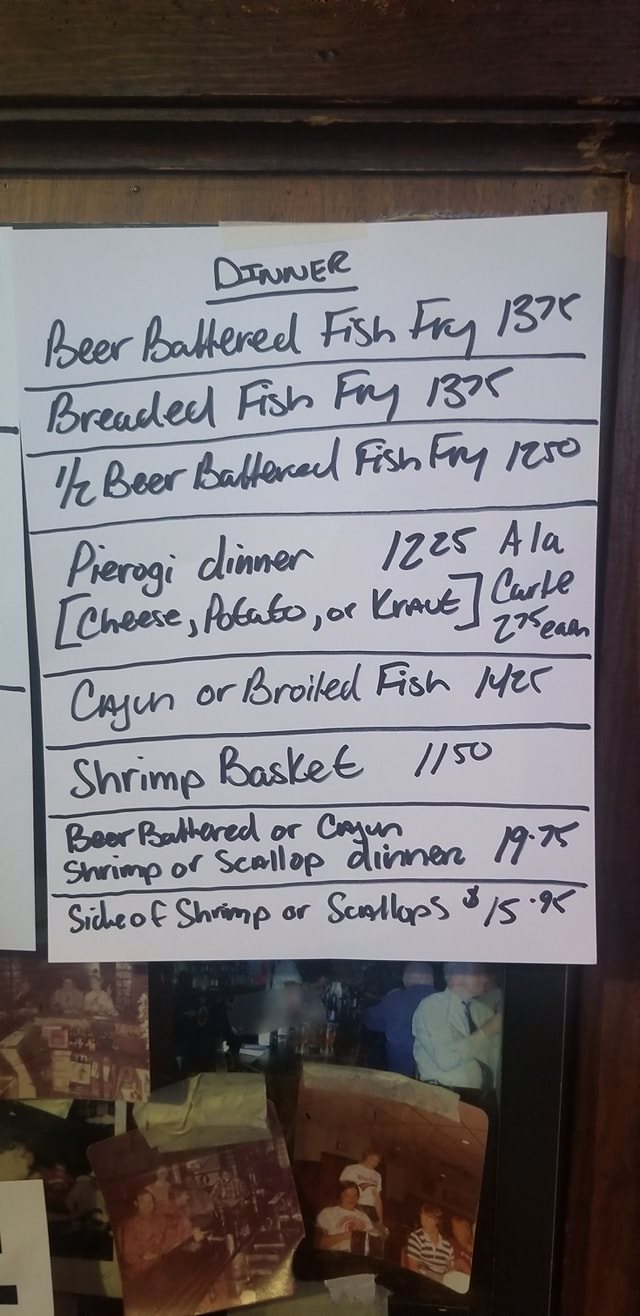 DINNER
Beer Battered Fish Fry 1375
Breaded Fish Fry 1375
1/2 Beer Battered Fish Fry 1250
Pierogi dinner 1225 Ala
[Cheese, Potato, or KRAUT] Carte
275 each
Cajun or Broiled Fish 1425
Shrimp Basket 1150
Beer Battered or Cajun
Shrimp or Scallop dinner 19.75
Side of Shrimp or Scallops $15.95